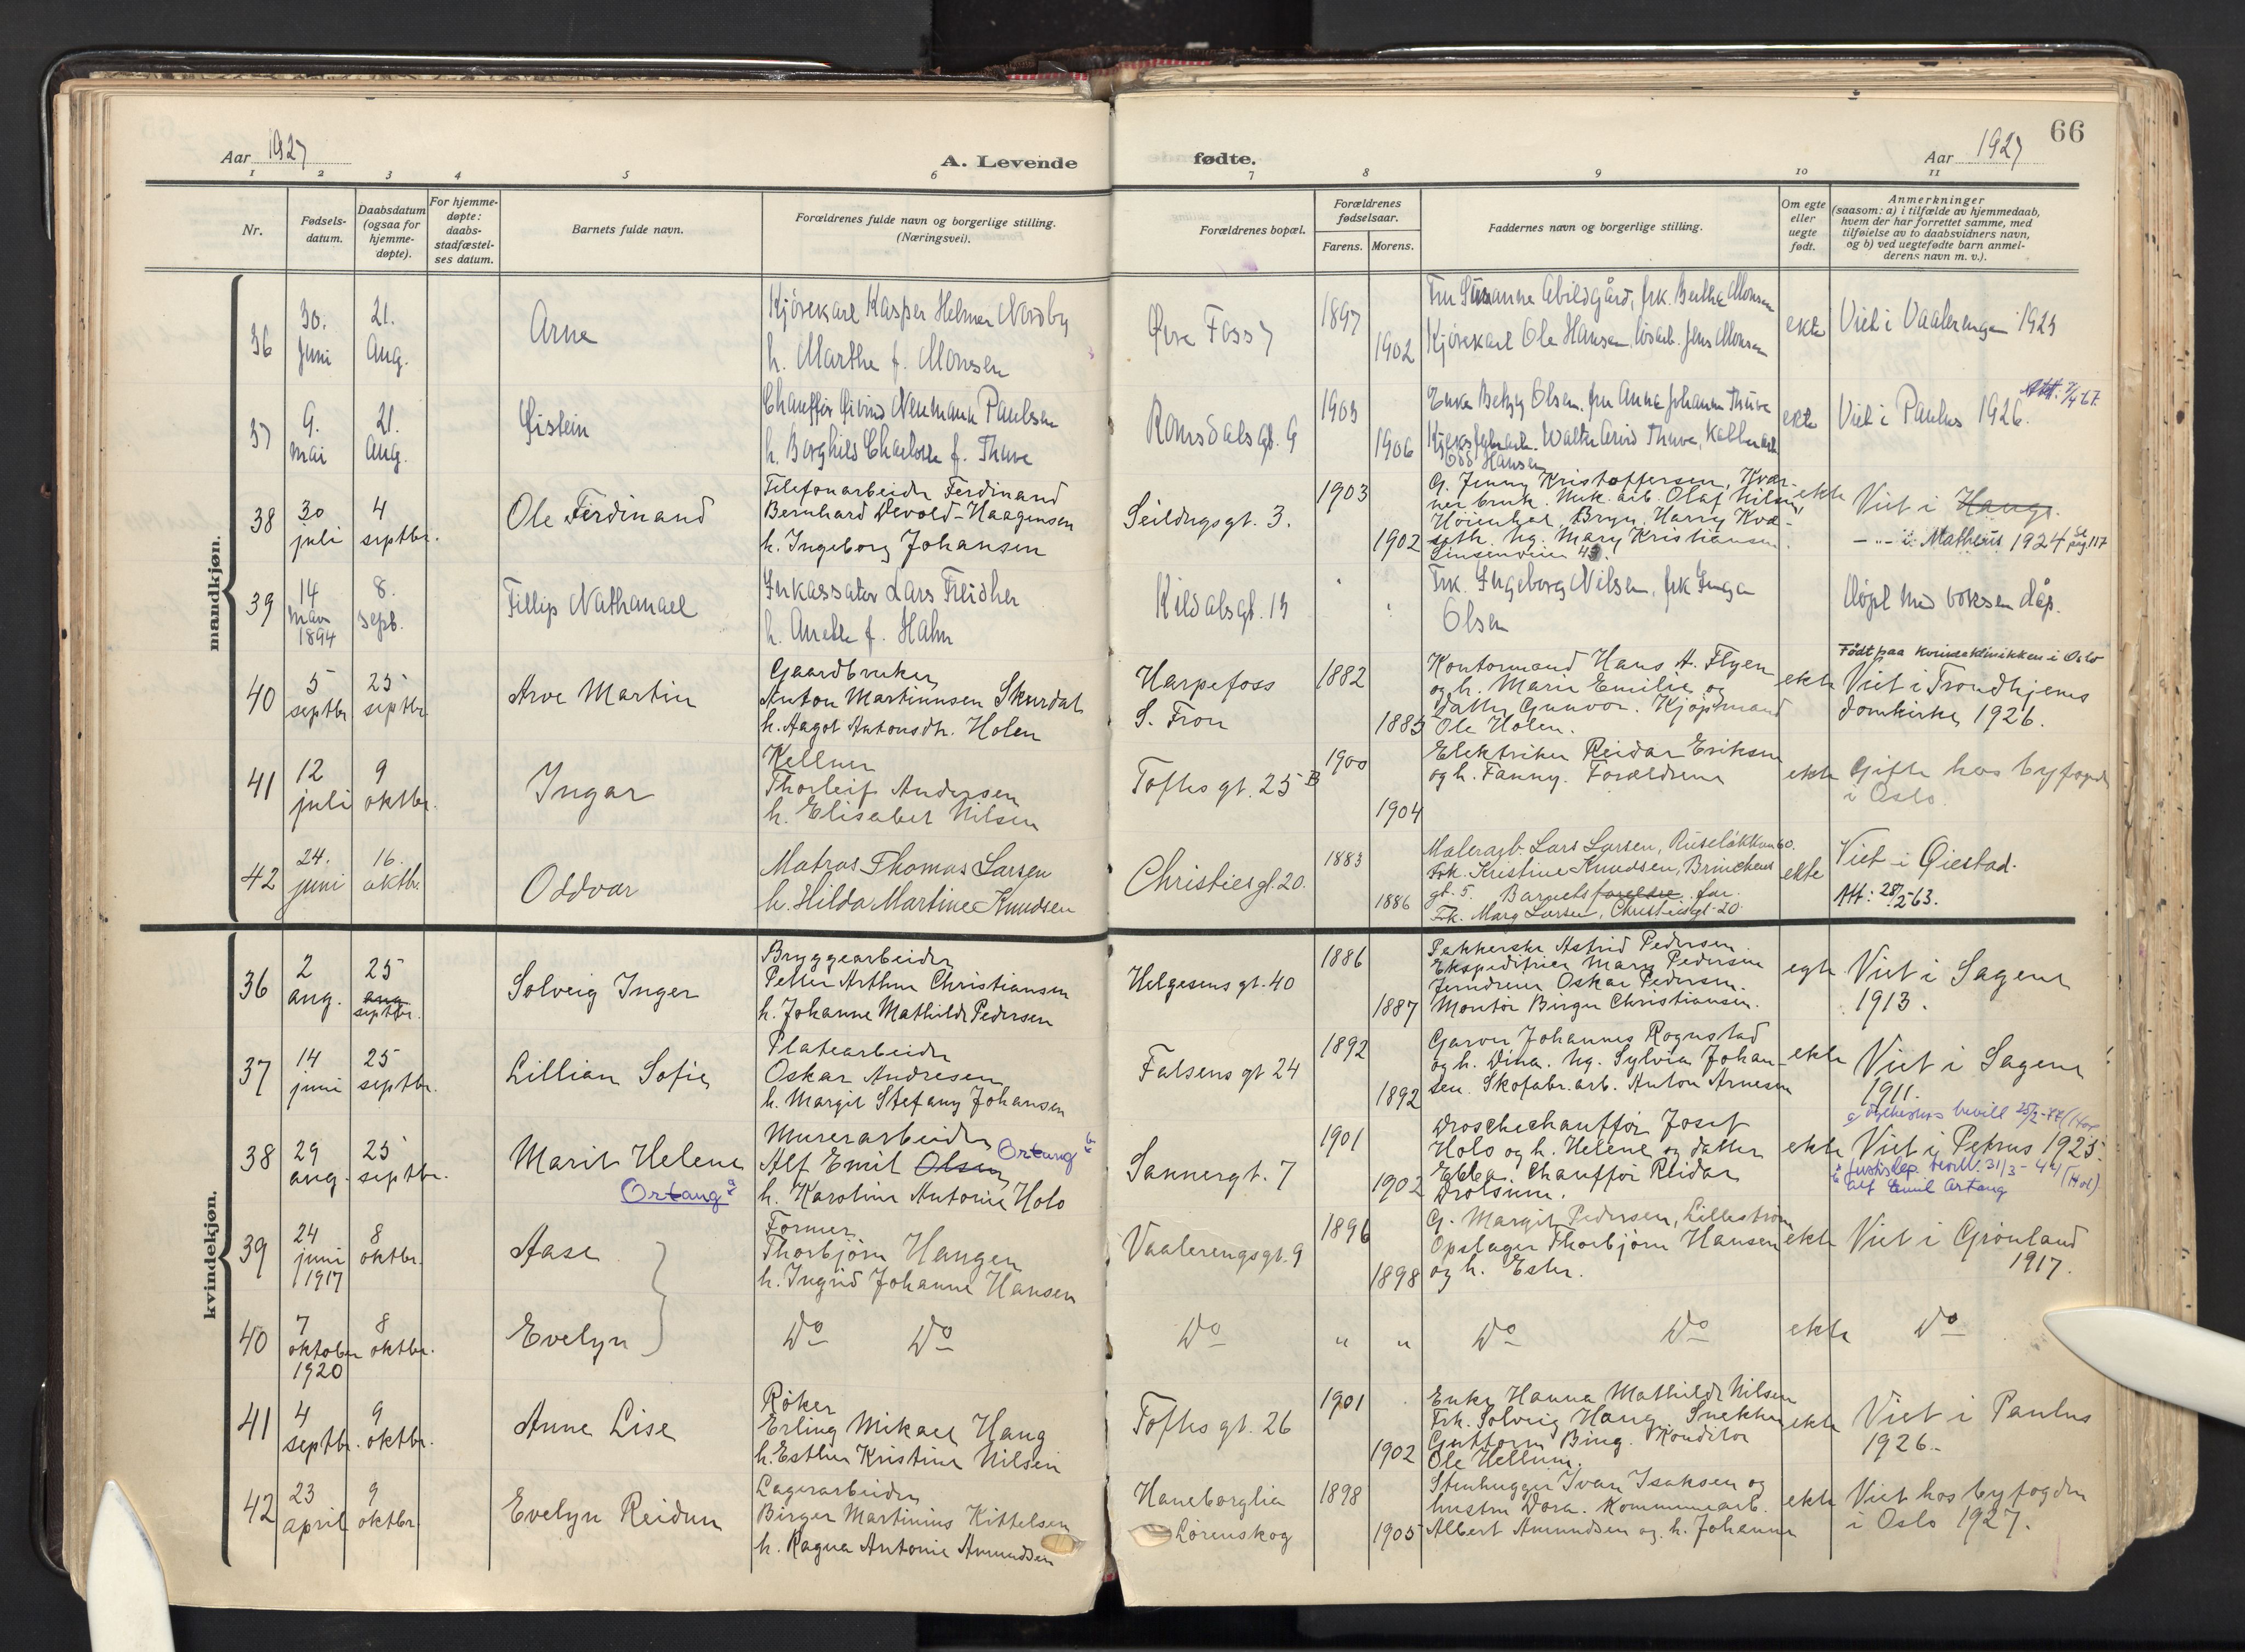 66
Aar 1927
A. Levende
fødte.
Aar 1927
1 2 3 4 5 6 7 8 9 10 11
Nr.
Fødsels-
datum.
Daabsdatum
(ogsaa for
hjemme-
døpte).
For hjemme-
døpte:
daabs-
stadfæstel-
ses datum.
Barnets fulde navn.
Forældrenes fulde navn og borgerlige stilling.
(Næringsvei).
Forældrenes bopæl.
Forældrenes
fødselsaar.
Farens. Morens.
Faddernes navn og borgerlige stilling.
Om egte
eller
uegte
født.
Anmerkninger
(saasom: a) i tilfælde av hjemmedaab,
hvem der har forrettet samme, med
tilføielse av to daabsvidners navn,
og b) ved uegtefødte barn anmel-
derens navn m. v.).
mandkjøn.
36
30.
Juni
21.
Aug.
Arne
Kjørekarl Kasper Helmer Nordby
h. Marthe f. Monsen
Øvre Foss 7
1897
1902
Fru Susanne Abildgård, frk. Berthe Monsen
Kjørekarl Ole Hansen, løsarb. Jens Monsen
ekte
Viet i Vaalerengen 1925
37
9.
mai
21.
Aug.
Øistein
Chauffør Øivind Neumann Paulsen
h. Borghild Charlotte f. Thuve
Romsdalsgt. 9
1905
1906
Enke Betzy Olsen, fru Anna Johanne Thuve
Walter Arvid Thuve,
Odd Hansen
ekte
Viet i Paulus 1926.
Att. 7/4 67.
38
30
juli
4
septbr.
Ole Ferdinand
Telefonarbeider Ferdinand
Bernhard Devold-Haagensen
h. Ingeborg Johansen
Seildugsgt. 3.
1903
1902
G. Jenny Kristoffersen, Kvær-
ner bruk. Mek. arb. Olaf Nilsen,
Høienhal, Bryn. Harry Kvæ-
seth. Ug. Mary Kristiansen
Linsenveien 43
ekte
Viet i Haugs.
— „ — i Matheus 1924 Se pag 117
39
14
mars
1894
8.
sept.
Fillip Nathanael
Inkassator Lars Freidher
h. Anette f. Hahn
Kildalsgt. 15
Frk. Ingeborg Nilsen, frk Inga
Olsen
Døpt med voksen dåp.
40
5
septbr.
25
septbr.
Arve Martin
Gaardbruker
Anton Martinusen Skurdal
h. Aagot Antonsdtr. Holen
Harpefoss
S. Fron
1882
1885
Kontormand Hans A. Flyen
og h. Marie Emilie og
datter Gunvor. Kjøpmand
Ole Holen.
ekte
Født paa kvindeklinikken i Oslo
Viet i Trondhjems
domkirke 1926.
41
12
juli
9
oktbr.
Ingar
Kellner
Thorleif Andersen
h. Elisabet Nilsen
Toftes gt. 25 B
1900
1904
Elektriker Reidar Eriksen
og h. Fanny. Forældrene
ekte
Gifte hos byfogden
i Oslo.
42
24.
juni
16.
oktbr.
Oddvar
Matros Thomas Larsen
h. Hilda Martine Knudsen
Christiesgt. 20.
1883
1886
Malerarb. Lars Larsen, Ruseløkkun 60.
Frk. Kristine Knudsen, Brinchens
gt. 5. Barnets foreldre far.
Frk. Mary Larsen, Christiesgt. 20
ekte
Viet i Øiestad.
Att: 28/2-63.
kvindekjøn.
36
2
aug.
25
aug
septbr.
Solveig Inger
Bryggearbeider
Petter Arthur Christiansen
h. Johanne Mathilde Pedersen
Helgesens gt. 40
1886
1887
Pakkerske Astrid Pedersen.
Ekspeditrice Mary Pedersen
Jerndreier Oskar Pedersen.
Montør Birger Christiansen.
egte
Viet i Sagene
1913.
37
14
juni
25
septbr.
Lillian Sofie
Platearbeider
Oskar Andresen
h. Margit Stefany Johansen
Falsens gt 24
1892
1892
Garver Johannes Rognstad
og h. Dina. Ug. Sylvia Johan-
sen. Skofabr. arb. Anton Arnesen
ekte
Viet i Sagene
1911.
38
29
aug.
25
septbr.
Marit Helene
Ortang a
Murerarbeider
Alf Emil Olsen Ortang b
h. Karoline Antonie Holo
Sannergt. 7
1901
1902
Droschechauffør Josef
Holo og h. Helene og datter
Ebba. Chauffør Reidar
Drolsum.
ekte
a Fylkesm.s bevill 25/2-47 (Hor
Viet i Petrus 1925.
b Justisdep. bevill. 31/3-49 (Hor)
Alf Emil Ortang
39
24
juni
1917
8
oktbr.
Aase
Former
Thorbjørn Haugen
h. Ingrid Johanne Hansen
Vaalerengsgt. 9
1896
1898
G. Margit Pedersen, Lillestrøm
Opslager Thorbjørn Hansen
og h. Ester.
ekte
Viet i Grønland
1917.
40
7
oktober
1920
8
oktbr.
Evelyn
Do Do
Do
„ „
Do Do
ekte
Do
41
4
septbr.
9
oktbr.
Anne Lise
Røker
Erling Mikael Haug
h. Esther Kristine Nilsen
Toftes gt. 26
1901
1902
Enke Hanna Mathilde Nilsen
Frk. Solveig Haug. Snekker
Guttorm Bing. Konditor
Ole Hellum.
ekte
Viet i Paulus
1926.
42
23
april
9
oktbr.
Evelyn Reidun
Lagerarbeider
Birger Martinius Kittelsen
h. Ragna Antonie Amundsen
Haneborglia
Lørenskog
1898
1905
Stenhugger Ivar Isaksen og
hustru Dora. Kommunearb.
Albert Amundsen og h. Johanne
ekte
Viet hos byfogden
i Oslo 1927.